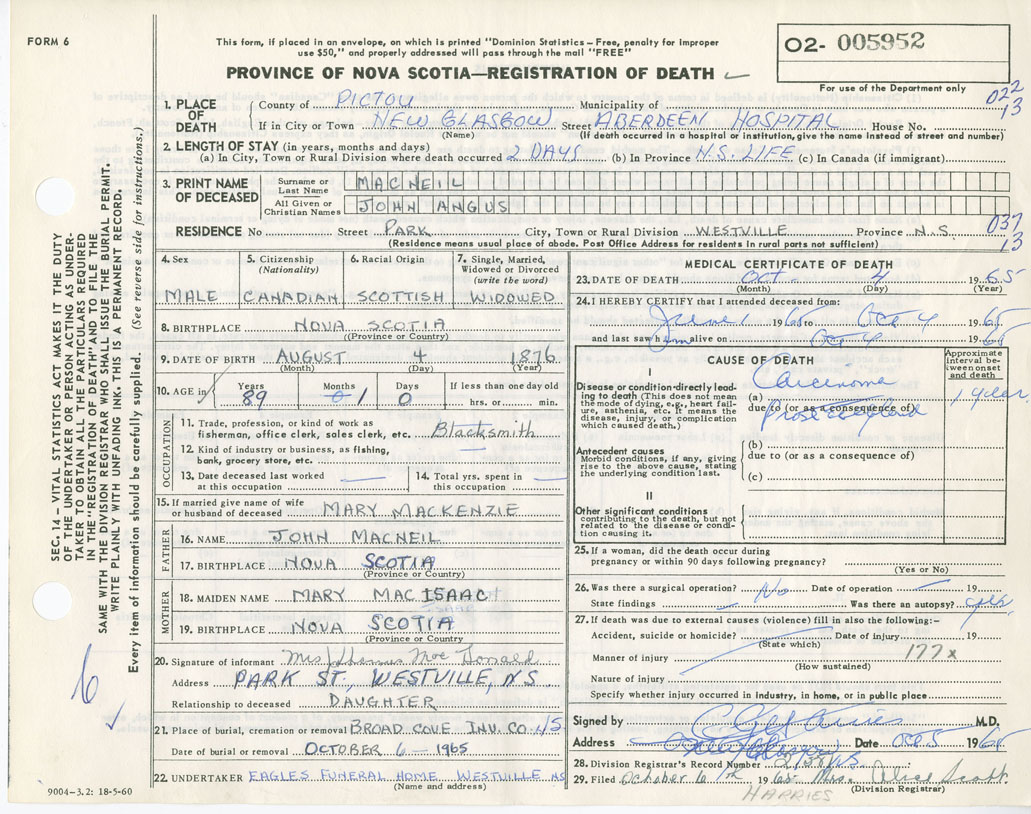 FORM 6
This form, if placed in an envelope, on which is printed "Dominion Statistics – Free, penalty for improper
use $50," and properly addressed will pass through the mail "FREE"
O2- 005952
PROVINCE OF NOVA SCOTIA—REGISTRATION OF DEATH
For use of the Department only
022
13
1. PLACE OF DEATH
County of PICTOU Municipality of
If in City or Town NEW GLASGOW Street ABERDEEN HOSPITAL House No.
(Name) (If death occurred in a hospital or institution, give the name instead of street and number)
2. LENGTH OF STAY (in years, months and days)
(a) In City, Town or Rural Division where death occurred 2 DAYS (b) In Province N.S. LIFE (c) In Canada (if immigrant)
3. PRINT NAME OF DECEASED
Surname or Last Name MACNEIL
All Given or Christian Names JOHN ANGUS
037
13
RESIDENCE No Street PARK City, Town or Rural Division WESTVILLE Province N.S.
(Residence means usual place of abode. Post Office Address for residents in rural parts not sufficient)
4. Sex 5. Citizenship (Nationality) 6. Racial Origin 7. Single, Married, Widowed or Divorced (write the word)
MALE CANADIAN SCOTTISH WIDOWED
8. BIRTHPLACE NOVA SCOTIA
((Province or Country)
9. DATE OF BIRTH AUGUST 4 1876
(Month) (Day) (Year)
10. AGE in Years Months Days If less than one day old
89 1 0 hrs. or min.
OCCUPATION
11. Trade, profession, or kind of work as
fisherman, office clerk, sales clerk, etc. Blacksmith
12. Kind of industry or business, as fishing,
bank, grocery store, etc. —
13. Date deceased last worked at this occupation —
14. Total yrs. spent in this occupation —
15. If married give name of wife
or husband of deceased MARY MACKENZIE
FATHER
16. NAME JOHN MACNEIL
17. BIRTHPLACE NOVA SCOTIA
(Province or Country)
MOTHER
18. MAIDEN NAME MARY MAC ISAAC
19. BIRTHPLACE NOVA SCOTIA
(Province or Country
20. Signature of informant Mrs
Address PARK ST., WESTVILLE, N.S.
Relationship to deceased DAUGHTER
21. Place of burial, cremation or removal BROAD COVE INV. CO. NS
Date of burial or removal OCTOBER 6 – 1965
22. UNDERTAKER EAGLES FUNERAL HOME WESTVILLE NS
(Name and address)
9004–3.2: 18-5-60
MEDICAL CERTIFICATE OF DEATH
23. DATE OF DEATH Oct – 4 1965
(Month) (Day) (Year)
24. I HEREBY CERTIFY that I attended deceased from:
June 1 1965 to Oct 4 1965
and last saw him alive on Oct 4 1965
CAUSE OF DEATH
Approximate interval between onset and death
I
Disease or condition directly leading to death (This does not mean
the mode of dying, e.g., heart failure, asthenia, etc. It means the
disease, injury, or complication
which caused death.)
(a) Carcinoma 1 year
due to (or as a consequence of)
Prostate gland
(b)
due to (or as a consequence of)
(c)
Antecedent causes
Morbid conditions, if any, giving
rise to the above cause, stating
the underlying condition last.
II
Other significant conditions
contributing to the death, but not
related to the disease or condition causing it.
25. If a woman, did the death occur during
pregnancy or within 90 days following pregnancy?
(Yes or No)
26. Was there a surgical operation? No Date of operation — 19
State findings — Was there an autopsy?
27. If death was due to external causes (violence) fill in also the following:–
Accident, suicide or homicide? Date of injury 19
(State which)
177x
Manner of injury
(How sustained)
Nature of injury
Specify whether injury occurred in industry, in home, or in public place
Signed by M.D.
Address Date Oct 5 1965
28. Division Registrar's Record Number
29. Filed October 6 1965 Mrs. Alice Scott
(Division Registrar)
HARRIES
SEC. 14 – VITAL STATISTICS ACT MAKES IT THE DUTY
OF THE UNDERTAKER OR PERSON ACTING AS UNDER-
TAKER TO OBTAIN ALL THE PARTICULARS REQUIRED
IN THE "REGISTRATION OF DEATH" AND TO FILE THE
SAME WITH THE DIVISION REGISTRAR WHO SHALL ISSUE THE BURIAL PERMIT.
WRITE PLAINLY WITH UNFADING INK. THIS IS A PERMANENT RECORD.
Every item of information should be carefully supplied. (See reverse side for instructions.)
6